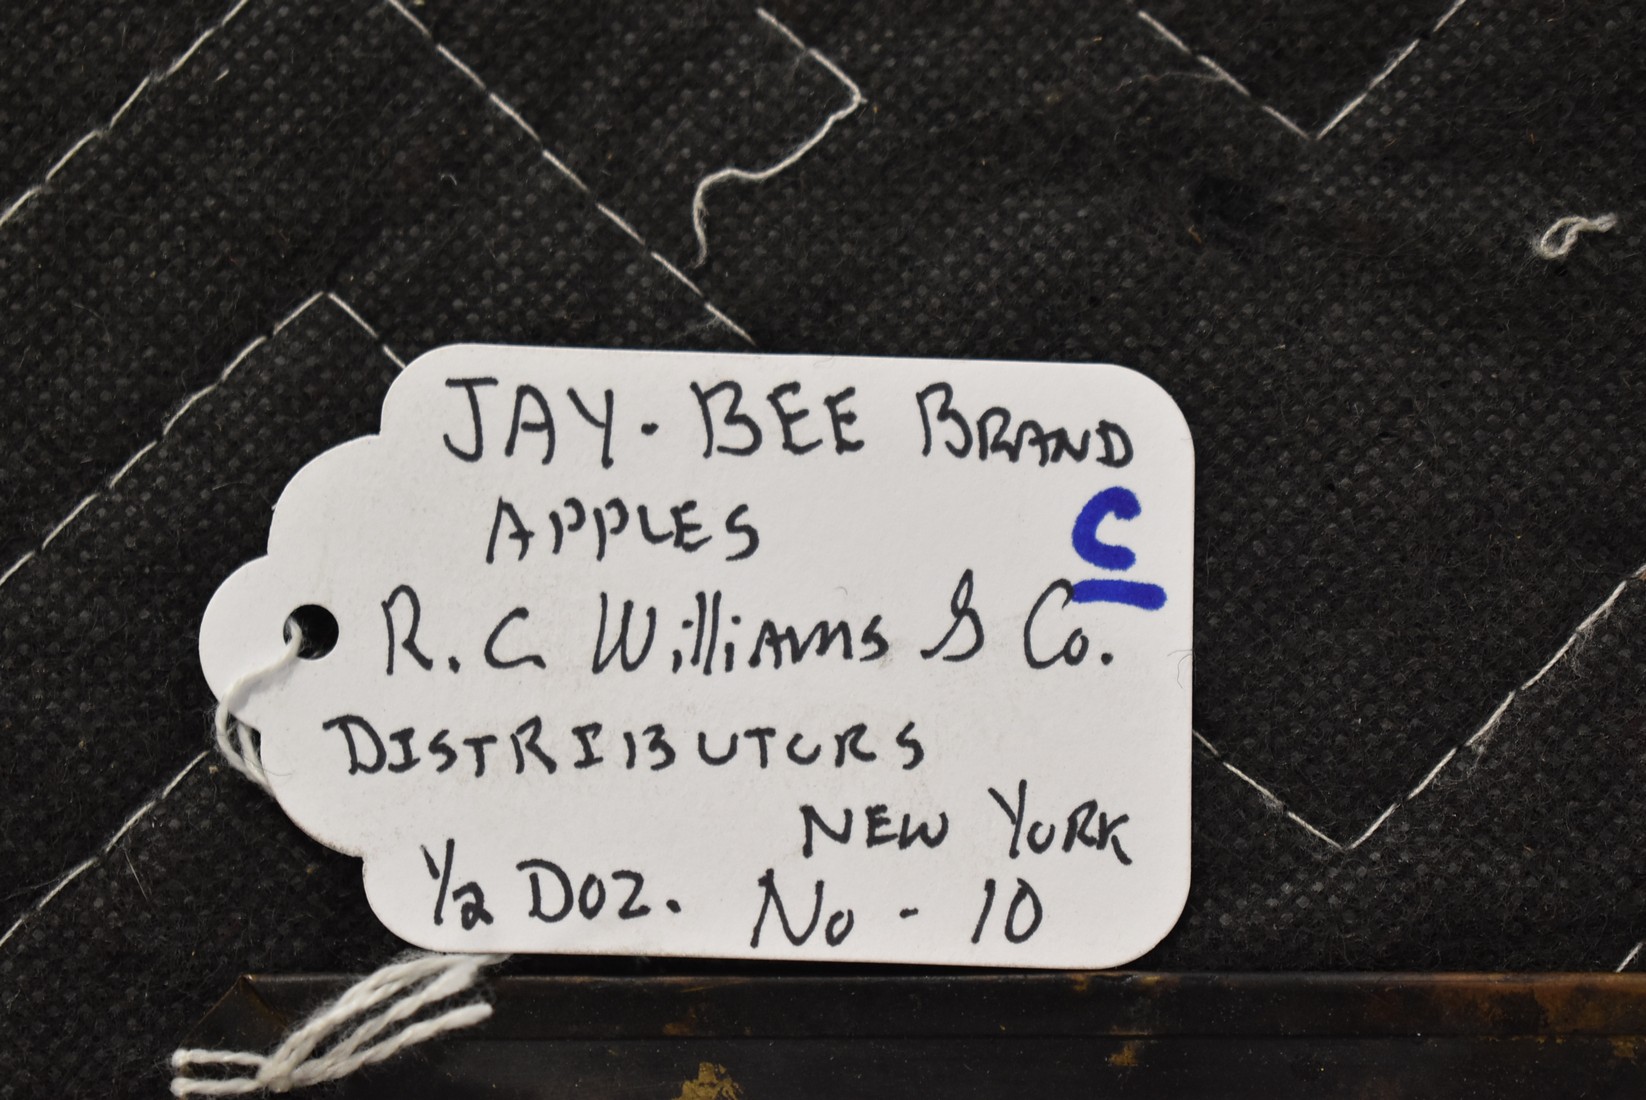 JAY-BEE BRAND
APPLES
C
R. C. Williams & Co.
DISTRIBUTORS
NEW YORK
1/2 DOZ. No - 10